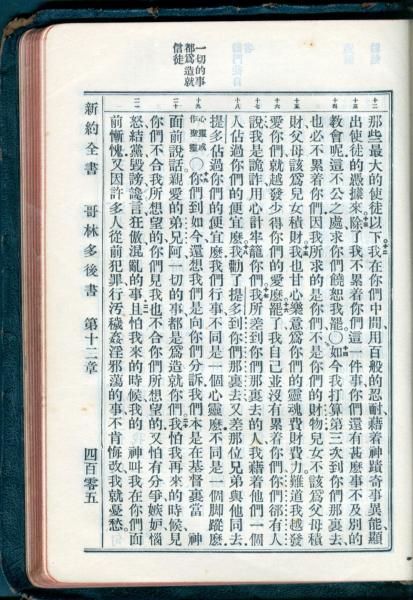 一切的事
都爲造就
信徒
十二
那些最大的使徒以下我在你們中間用百般的忍耐藉着神蹟奇事異能顯
十三
出使徒的憑據來除了我不累着你們這一件事你們還有甚麼事不及別的
十四
教會呢這不公之處求你們饒恕我罷○如今我打算第三次到你們那裏去
也必不累着你們因我所求的是你們不是你們的財物兒女不該爲父母積
十五
財父母該爲兒女積財我也甘心樂意爲你們的靈魂費財費力難道我越發
十六
愛你們就越發少得你們的愛麼罷了我自己並沒有累着你們你們卻有人
十七
說我是詭詐用心計牢籠你們我所差到你們那裏去的人我藉着他們一個
十八
人佔過你們的便宜麼我勸了提多到你們那裏去又差那位兄弟與他同去
提多佔過你們的便宜麼我們行事不同是一個心靈麼不同是一個腳蹤麼
十九
心靈或作聖靈○你們到如今還想我們是向你們分訴我們本是在基督裏當 神
二十
面前說話親愛的弟兄阿一切的事都是爲造就你們我怕我再來的時候見
你們不合我所想望的你們見我也不合你們所想望的又怕有分爭嫉妒惱
二一
怒結黨毀謗讒言狂傲混亂的事且怕我來的時候我的 神叫我在你們面
前慚愧又因許多人從前犯罪行汚穢姦淫邪蕩的事不肯悔改我就憂愁。
新約全書 哥林多後書 第十二章 四百零五